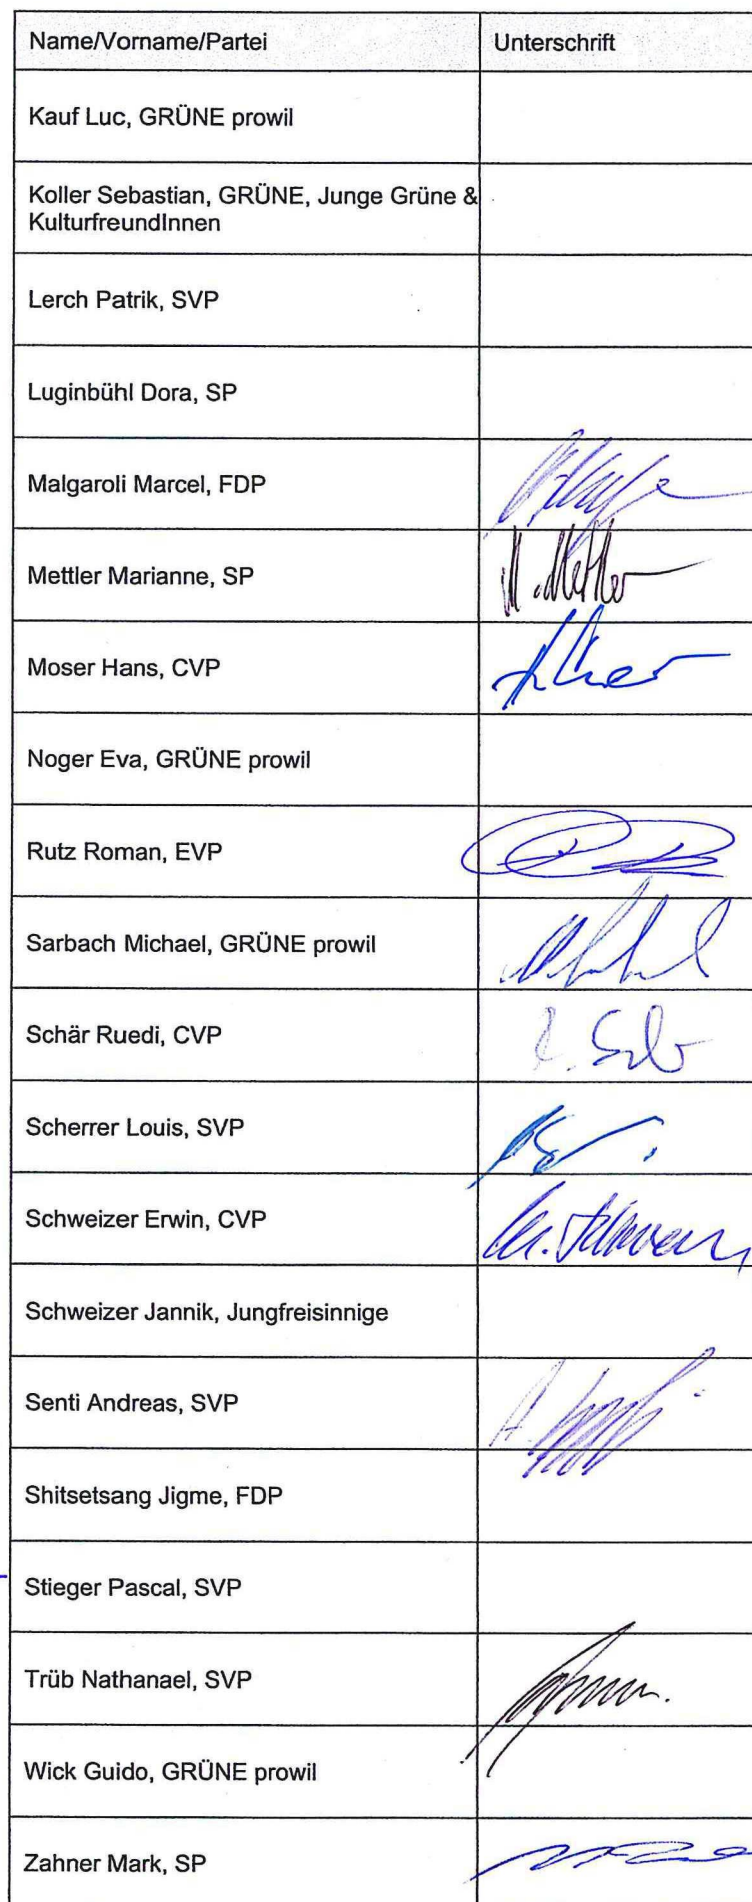 Name/Vorname/Partei Unterschrift
Kauf Luc, GRÜNE prowil
Koller Sebastian, GRÜNE, Junge Grüne &
KulturfreundInnen
Lerch Patrik, SVP
Luginbühl Dora, SP
Malgaroli Marcel, FDP
Mettler Marianne, SP M. Mettler
Moser Hans, CVP
Noger Eva, GRÜNE prowil
Rutz Roman, EVP
Sarbach Michael, GRÜNE prowil
Schär Ruedi, CVP
Scherrer Louis, SVP
Schweizer Erwin, CVP
Schweizer Jannik, Jungfreisinnige
Senti Andreas, SVP
Shitsetsang Jigme, FDP
Stieger Pascal, SVP
Trüb Nathanael, SVP
Wick Guido, GRÜNE prowil
Zahner Mark, SP